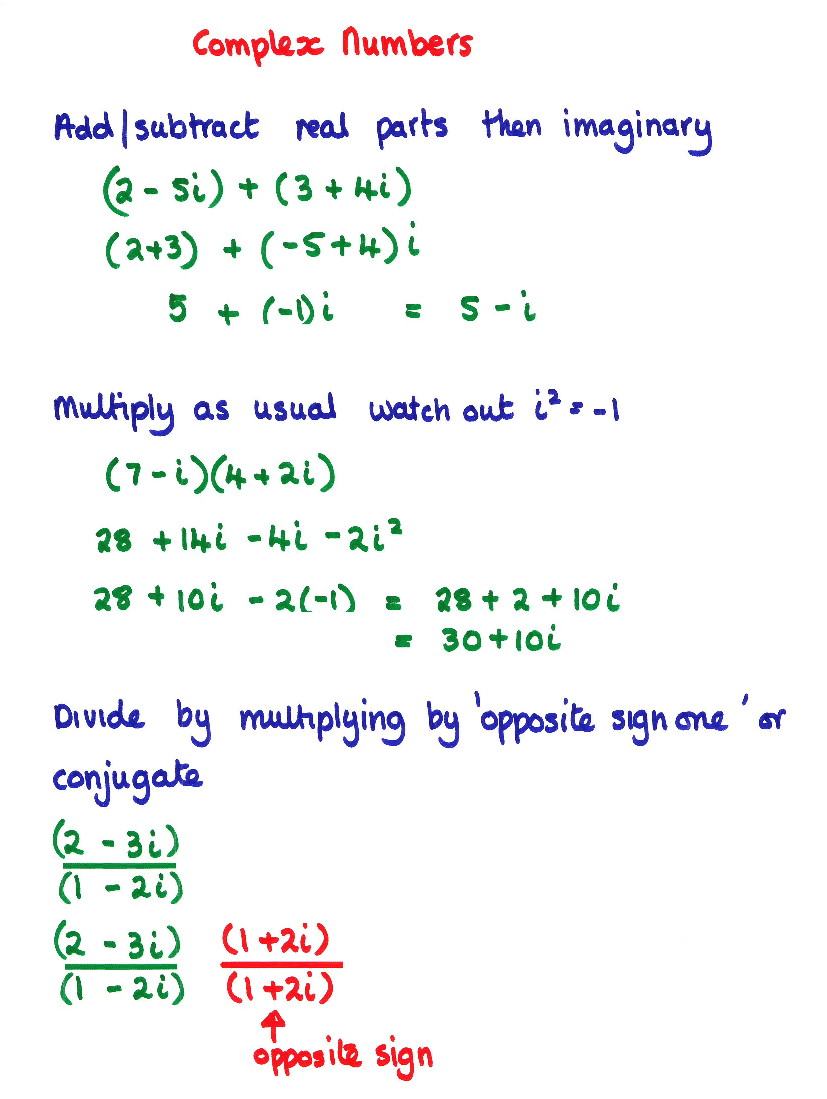 Complex Numbers
Add/subtract real parts then imaginary
(2 - 5i) + (3 + 4i)
(2+3) + (-5+4)i
5 + (-1)i = 5 - i
Multiply as usual watch out i² = -1
(7 - i)(4 + 2i)
28 + 14i - 4i - 2i²
28 + 10i - 2(-1) = 28 + 2 + 10i
= 30 + 10i
Divide by multiplying by 'opposite sign one' or
conjugate
(2 - 3i)
(1 - 2i)
(2 - 3i) (1 + 2i)
(1 - 2i) (1 + 2i)
opposite sign